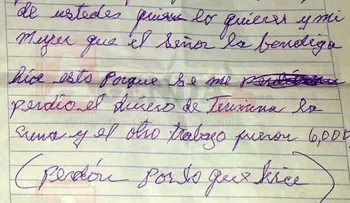 de ustedes quiero lo quieren y mi
mujer que el Señor la bendiga
hice esto porque se me
perdio el dinero de la
y el otro trabajo fueron 6,000
(perdón por lo que hice)